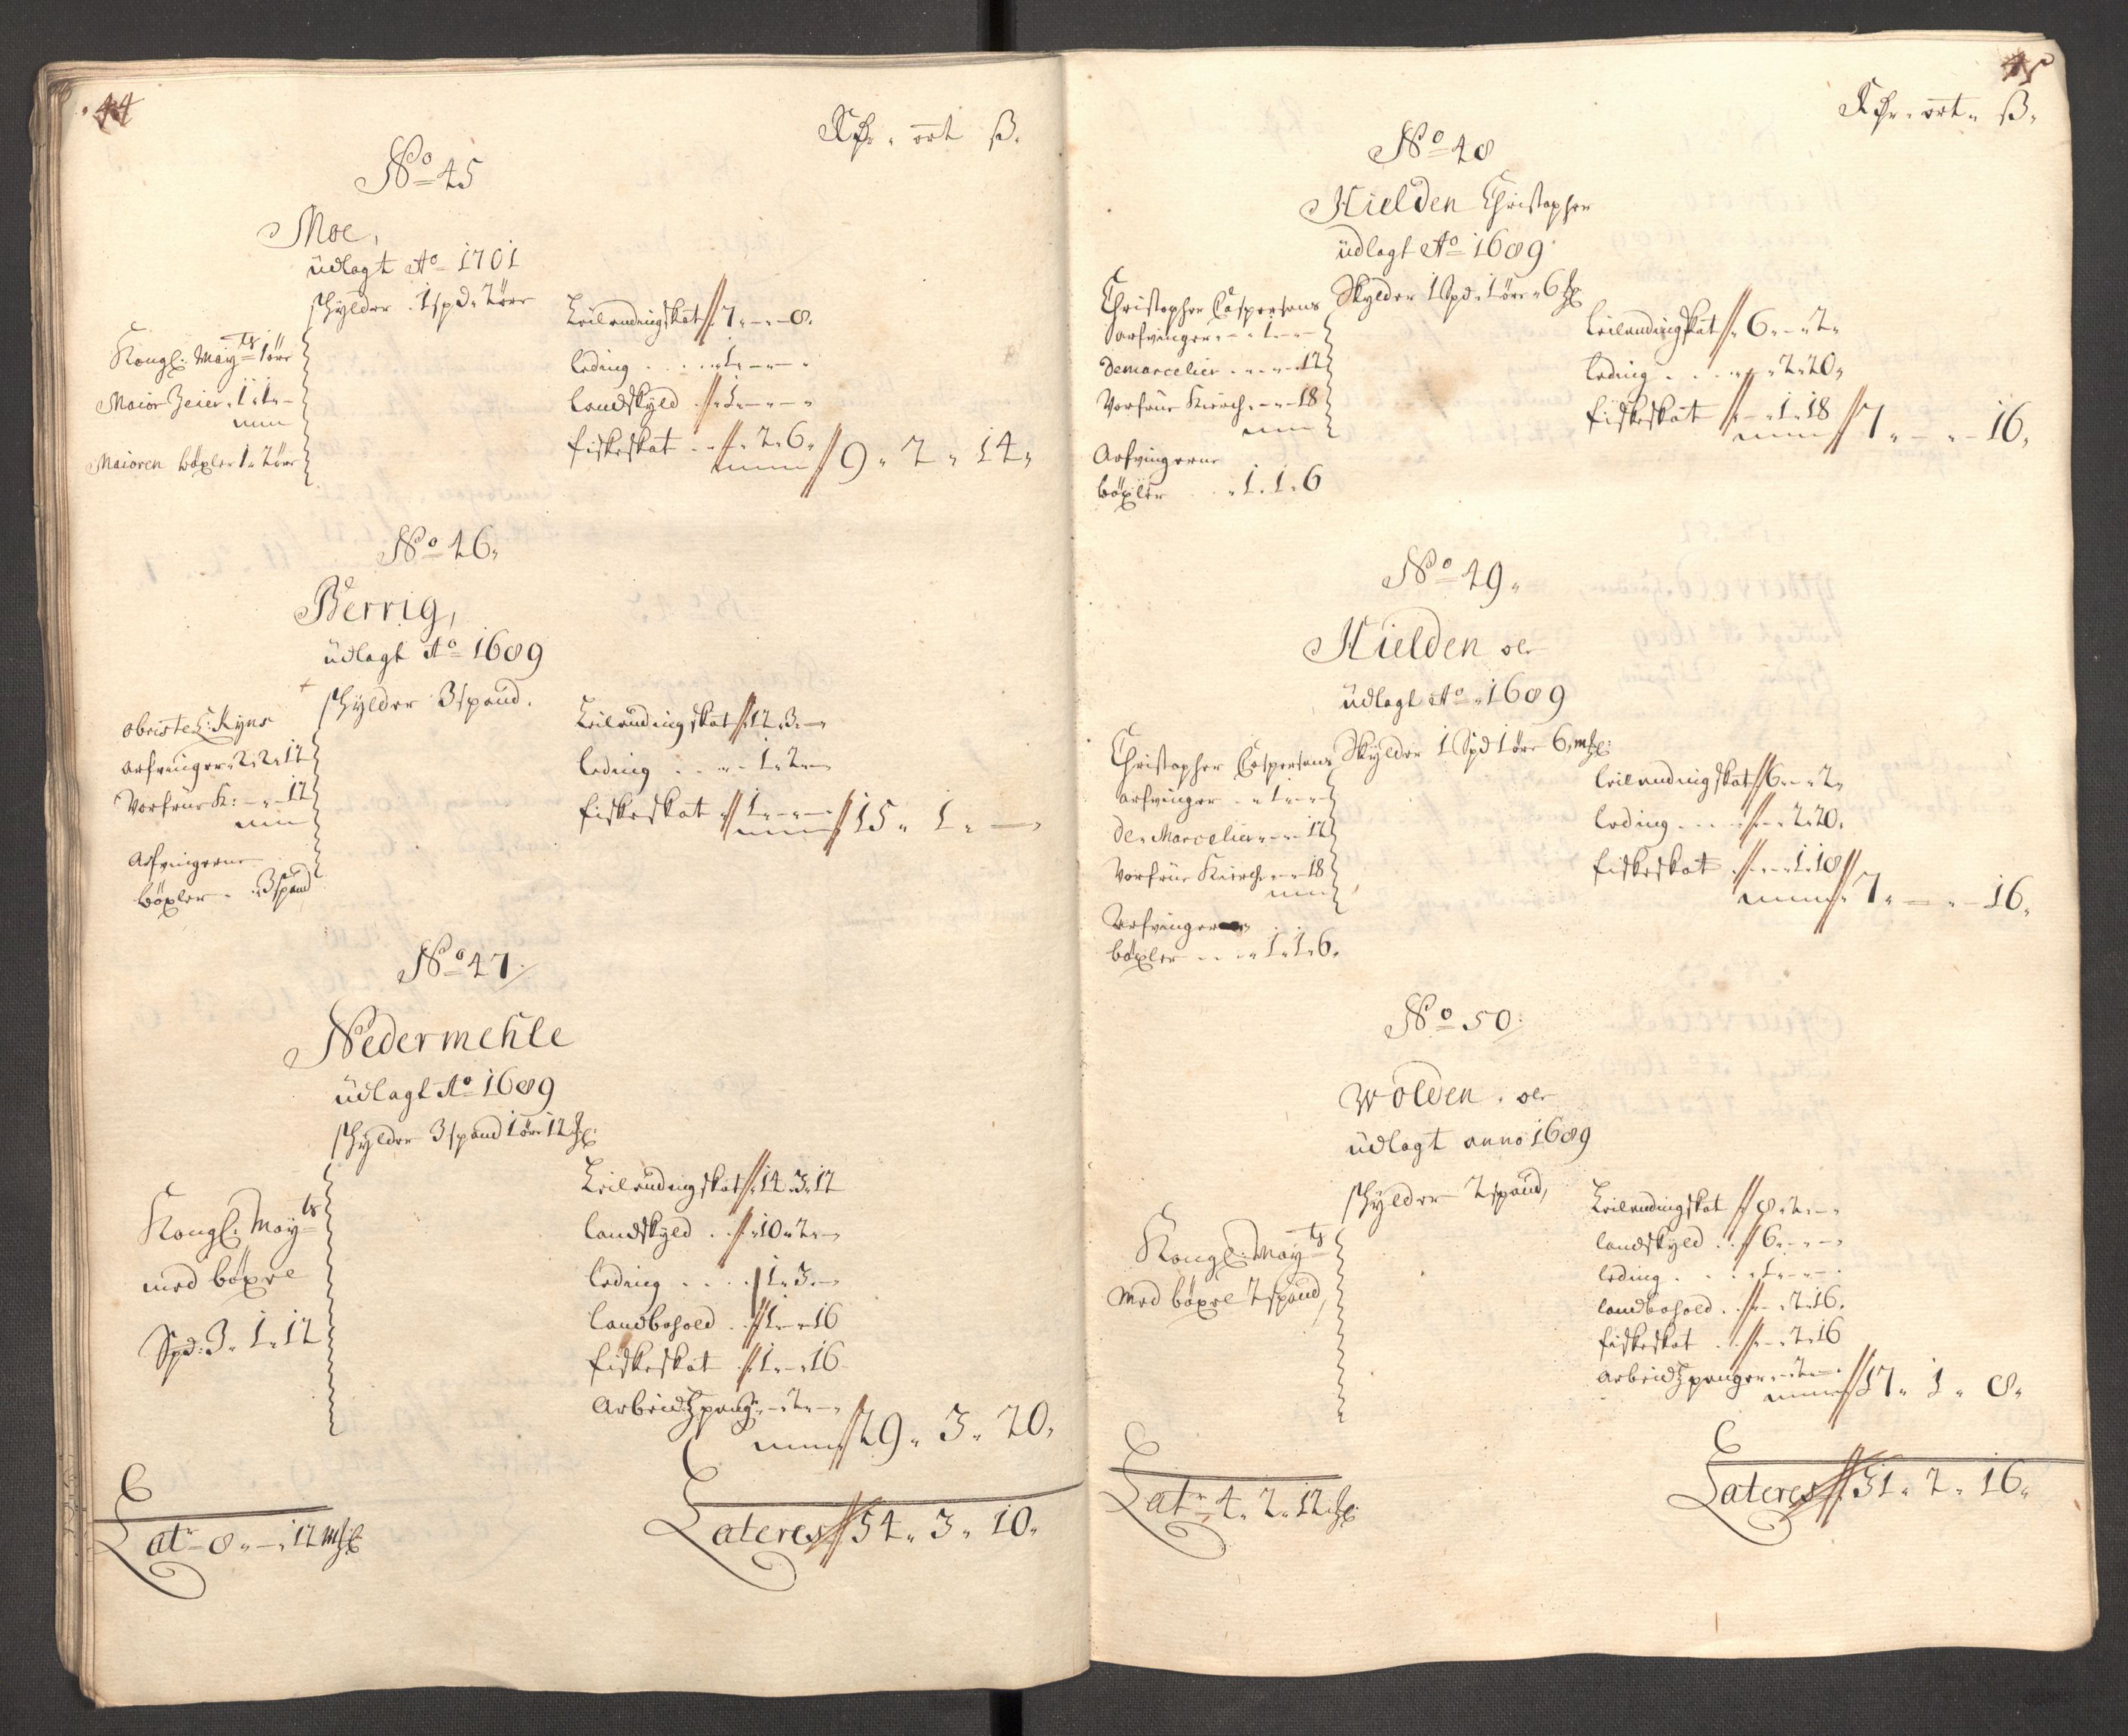 44
Rdr. ort ß.
No 45
Moe,
üdlagt Ao 1701
schylder 1 spd. 2 öre
Kongl: Mayts 1 öre
Maior Zeier 1. 1. -
Maioren böxler 1. 2 öre
Leilendingskat 7. - 8.
leding . . . 1. - -
landskyld . 1. - -
fiskeskat . . - 2. 6.
9. 2. 14.
No 46.
Berrig,
üdlagt Ao 1689
schylder 3 spand.
obriste L: Kyns
arfvinger 2. 2. 12
Vorfrue K: - - 12
Arfvingerne
böxler . 3 spand
Leilendingskat 12. 3. -
leding . . . 1. 2. -
fiskeskat . 1. - -
15. 1. -
No 47.
Nedermehle
üdlagt Ao 1689
schylder 3 spand 1 öre 12 ml:
Kongl: Mayts
med böxle
Spd: 3. 1. 12
Leilendingskat 14. 3. 12
landskyld . 10. 2. -
leding . . . 1. 3. -
landbohold . 1. - 16
fiskeskat . 1. - 16
Arbeidtzpenge - 2. -
29. 3. 20.
Latr 8. - . 12 ml:
Lateres 54. 3. 10.
45
Rdr. ort. ß.
No 48
Hielden Christopher
üdlagt Ao 1689
Skylder 1 Spd. 1 öre. 6 ml:
Christopher Caspersens
arfvinger . . 1. - -
Demarcelier . . . - 12
Vorfrue Kirch. - - 18
Arfvingerne
böxler . . 1. 1. 6
Leilendingskat 6. - 2.
leding . . . - 2. 20.
fiskeskat - 1. 18
7. - . 16.
No 49.
Hielden ole
üdlagt Ao 1689
Skylder 1 Spd 1 öre 6 ml:
Christopher Caspersens
arfvinger . . 1. - -
De Marcelier - - - 12
Vorfrue Kirch - - 18
Arfvingerne
böxler . . . 1. 1. 6.
Leilendingskat 6. - 2.
leding . . . - 2. 20.
fiskeskat . - 1. 18
7. - . 16.
No 50.
Wolden. ole
üdlagt anno 1689
schylder 2 spand,
Kongl: Mayts
Med böxle 2 spand,
Leilendingskat 8. 2. -
landskyld . . 6. - -
leding . . . 1. - -
landbohold . . - 2. 16.
fiskeskat . . - 2. 16
arbeidtzpenger . - 2. -
17. 1. 8.
Latr 4. 2. 12 ml:
Lateres 31. 2. 16.